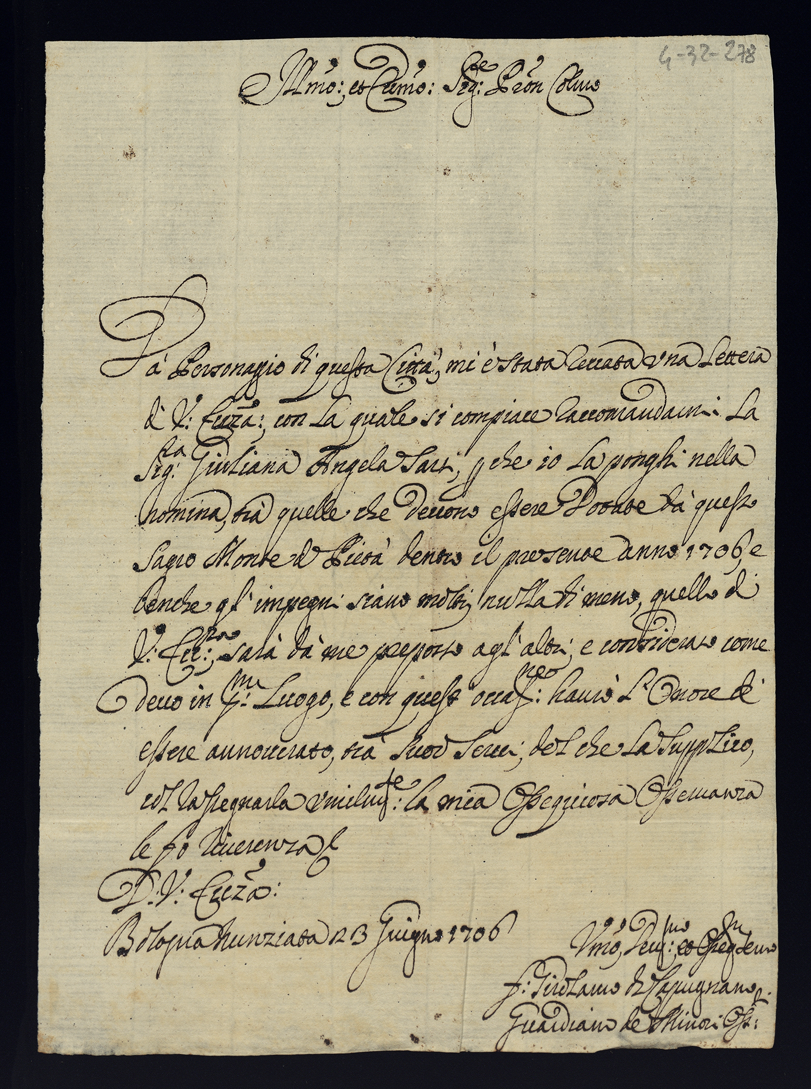 4-32-278
Illmo: et Ecc.mo: Sig:re Pron Colmo
Dà Personaggio di questa Città, mi è stata reccata una Lettera
di V: Ecc.za; con La quale si compiace raccomandarmi La
Sig:ra Giuliana Angela Sarti, p che io La ponghi nella
nomina, trà quelle che devono essere Dotate dà questo
Sagro Monte di Pietà dentro il presente anno 1706, e
benche gl' impegni siano molti, nulla di meno, quello di
V: Ecc:za, Sarà dà me preposto agl' altri; e considerato come
devo in p:mo Luogo, e con quest' occa:ne haurò L'Onore de
essere annoverato, trà Suoi Servi, del che La Supplico,
col rassegnarla umilm:te la mia Ossequiosa Osservanza
le fo riverenza
D: V: Ecc.za:
Bologna Nunziata 12 Giugno 1706
Vmo, Deu:mo, et Servre
f: Girolamo di Sapugnano
Guardiano de Minori Oss: